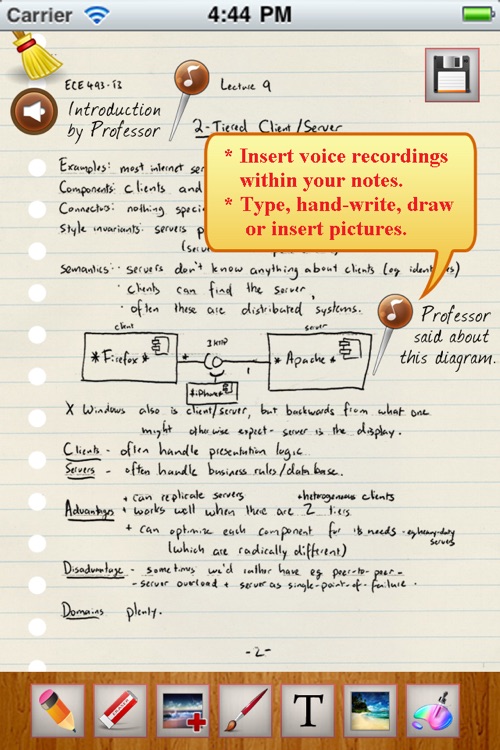 Carrier 4:44 PM
ECE 493-T3 Lecture 9
Introduction
by Professor
2-Tiered Client/Server
* Insert voice recordings
within your notes.
* Type, hand-write, draw
or insert pictures.
Examples: most internet ser
Components: clients and
Connectors: nothing speci
Style invariants: servers p
(ser
Semantics: · servers don't know anything about clients (eg identities)
· clients can find the server,
· often these are distributed systems.
Professor
said about
this diagram.
client server
*Firefox* * 1 HTTP 1 *Apache*
*iPhone*
X Windows also is client/server, but backwards from what one
might otherwise expect - server is the display.
Clients - often handle presentation logic.
Servers - often handle business rules/database.
+ can replicate servers +heterogenous clients
Advantages + works well when there are 2 tiers
+ can optimize each component for its needs - eg heavy-duty
servers
(which are radically different)
Disadvantage - sometimes we'd rather have eg peer-to-peer -
- server overload + server as single-point-of-failure.
Domains plenty.
-2-
T